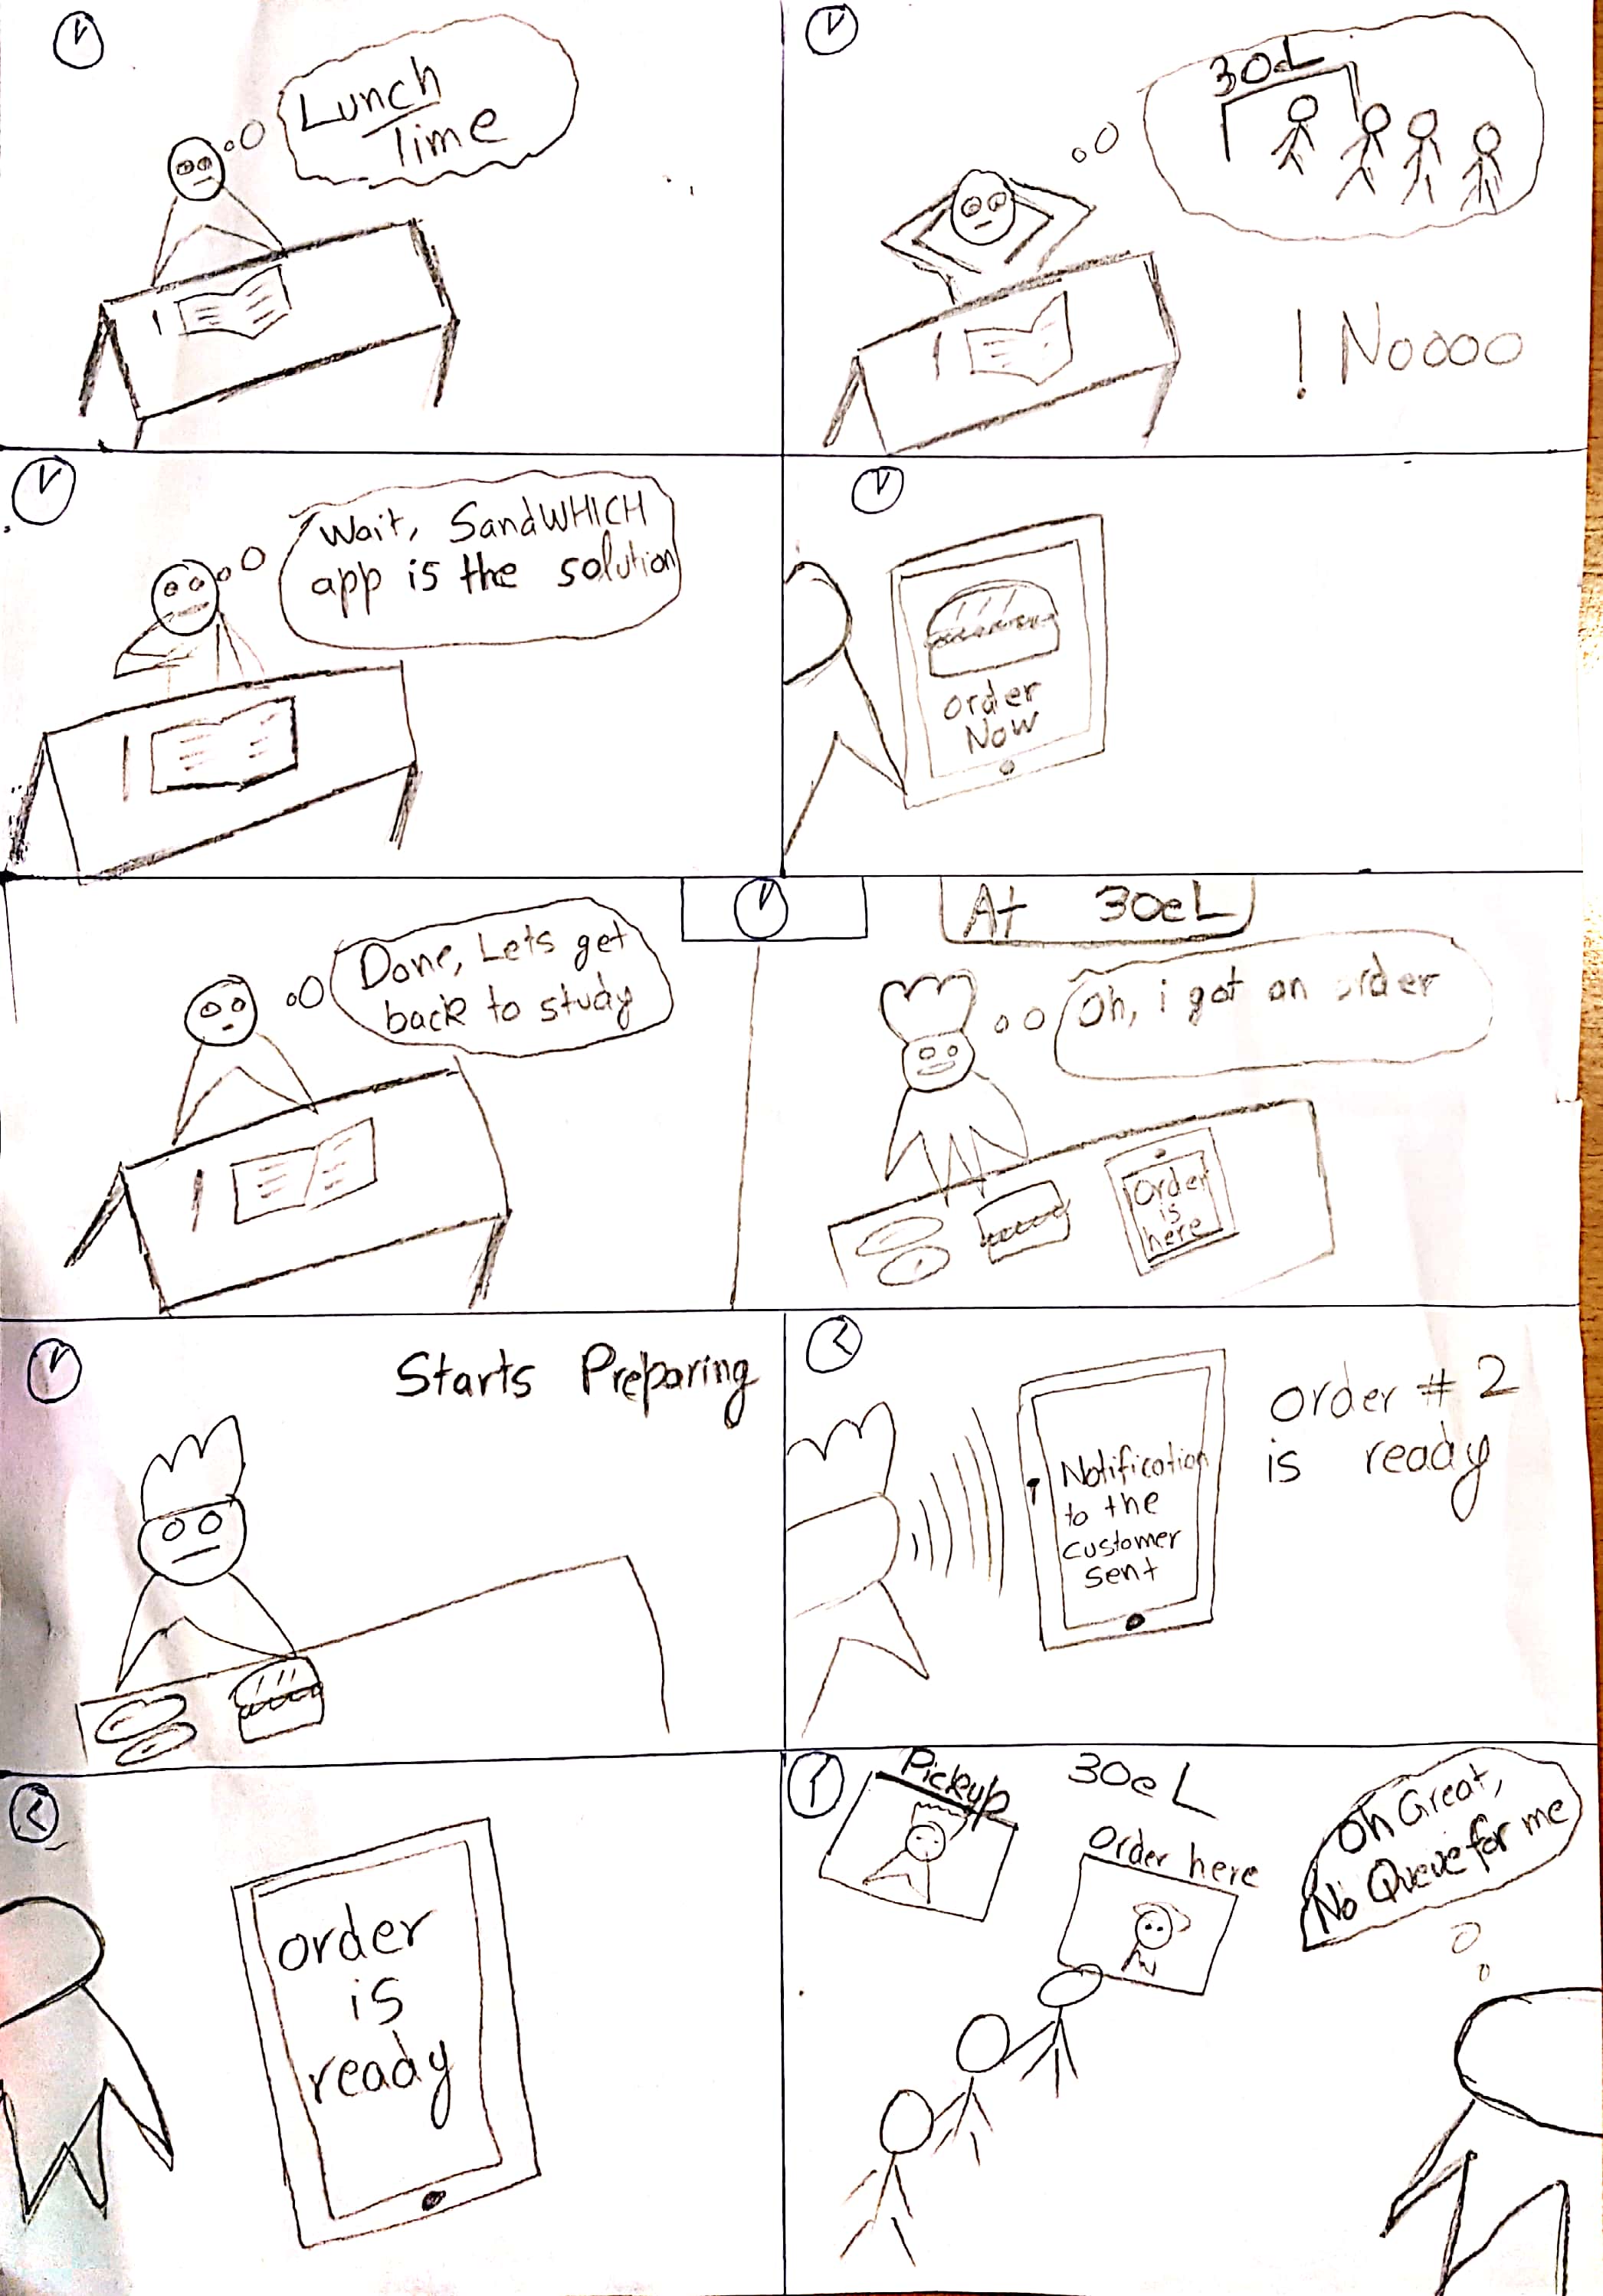 Lunch
Time
30eL
! Noooo
Wait, SandWHICH
app is the solution
order
Now
Done, Lets get
back to study
At 30eL
Oh, i got an order
Order
is
here
Starts Preparing
Notification
to the
customer
sent
order # 2
is ready
order
is
ready
Pickup
30eL
order here
Oh Great,
No Queue for me